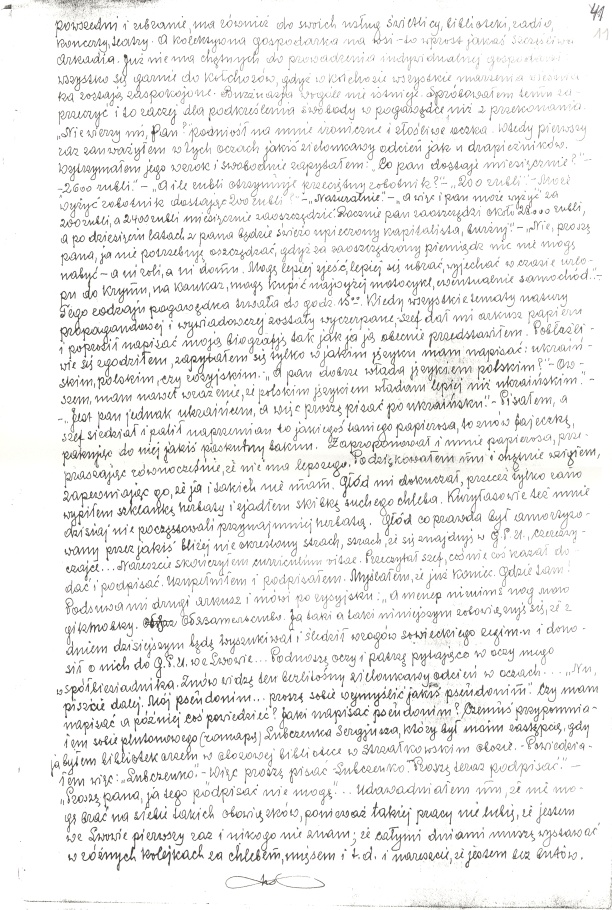 41
11
powszedni i ubranie, ma również do swoich usług świetlicy, biblioteki, radio,
koncerty, teatry. A kolektywna gospodarka na wsi – to wprost jakaś szczęśliwa
arkadia. Już nie ma chętnych do prowadzenia indywidualnej gospodarki
wszystko się garnie do kołchozów, gdyż w kołchozie wszystkie marzenia
ka zostają zaspokojone. Burżuazja wogóle nie istnieje. Spróbowałem temu za-
przeczyć i to raczej dla podkreślenia swobody w pogawędce, niż z przekonania.
"Nie wierzy mi, Pan? podniósł na mnie ironiczne i złośliwe oczka. Wtedy pierwszy
raz zauważyłem w tych oczach jakiś zielonkawy odcień jak u drapieżników.
Wytrzymałem jego wzrok i swobodnie zapytałem: "Co pan dostaje miesięcznie?" –
– 2600 rubli." – "A ile rubli otrzymuje przeciętny robotnik?" – "200 rubli." – Może
wyżyć robotnik dostając 200 rubli?" – "Naturalnie." – "A więc i pan może wyżyć za
200 rubli, a 2400 rubli miesięcznie zaoszczędzić. Rocznie pan zaoszczędzi około 28000 rubli,
a po dziesięciu latach z pana będzie świeżo upieczony kapitalista, burżuj." – "Nie, proszę
pana, ja nie potrzebuję oszczędzać, gdyż za zaoszczędzony pieniądz nic nie mogę
nabyć – a ni roli, a ni domu. Mogę lepiej zjeść, lepiej się ubrać, wyjechać w czasie urlo-
pu do Krymu, na Kaukaz, mogę kupić najwyżej motocykl, ewentualnie samochód." –
Tego rodzaju pogawędka trwała do godz. 15ej. Kiedy wszystkie tematy natury
propagandowej i wywiadowczej zostały wyczerpane, szef dał mi arkusz papieru
i poprosił napisać moją biografję tak jak ja ją obecnie przedstawiłem. Pobłażli-
wie się zgodziłem, zapytałem się tylko w jakim języku mam napisać: ukraiń-
skim, polskim, czy rosyjskim. "A pan dobrze włada językiem polskim?" – Ow-
szem, mam nawet wrażenie, że polskim językiem władam lepiej niż ukraińskim." –
– "Jest pan jednak ukraińcem, a więc proszę pisać po ukraińsku." – Pisałem, a
szef siedział i palił naprzemian to jakiegoś taniego papierosa, to znów fajeczkę,
pakując do niej jakiś paskudny takim. Zaproponował i mnie papierosa, prze-
praszając równocześnie, że nie ma lepszego. Podziękowałem mu i chętnie wziąłem,
zapewniając go, że ja i takich nie miałam. Głód mi dokuczał, przecież tylko rano
wypiłem szklankę herbaty i zjadłem skibkę suchego chleba. Kurytasowie też mnie
dzisiaj nie poczęstowali przynajmniej herbatą. Głód co prawda był amortyzo-
wany przez jakiś bliżej nie określony strach, strach, że się znajduję w G.P.U.,
czajce... Nareszcie skończyłem curriculum vitae. Przeczytał szef, coś nie coś kazał do-
dać i podpisać. Uzupełniłem i podpisałem. Myślałem, że już koniec. Gdzie tam!
Podsuwa mi drugi arkusz i mówi po rosyjsku: "A
Обязательство. Ja taki a taki niniejszym zobowiązuję się, że z
dniem dzisiejszym będę wyszukiwał i śledził wrogów sowieckiego reżimu i dono-
sił o nich do G.P.U. we Lwowie... Podnoszę oczy i patrzę pytająco w oczy mego
współbiesiadnika. Znów widzę ten bezlitosny zielonkawy odcień w oczach.... "Nu,
piszcie dalej, Mój pseudonim... proszę sobie wymyśleć jakiś pseudonim". Czy mam
napisać a później coś powiedzieć? Jaki napisać pseudonim? Czemuś przypomnia-
łem sobie plutonowego (romapy) Lubczenka Sergjusza, który był moim zastępcą, gdy
ja byłem bibliotekarzem w obozowej bibliotece w Strzałkowskim obozie. – Powiedzia-
łem więc: "Lubczenko." – Więc proszę pisać Lubczenko. Proszę teraz podpisać." –
"Proszę pana, ja tego podpisać nie mogę"... Udawadniałem mu, że nie mo-
gę brać na siebie takich obowiązków, ponieważ takiej pracy nie lubię, że jestem
we Lwowie pierwszy raz i nikogo nie znam; że całymi dniami muszę wystawać
w różnych kolejkach za chlebem, mięsem i t.d. i nareszcie, że jestem bez butów.